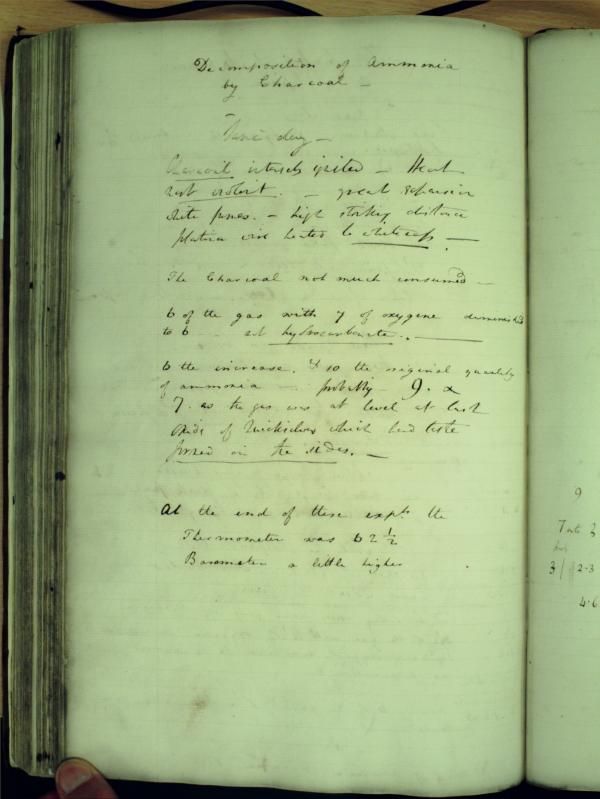 Decomposition of Ammonia
by Charcoal –
Same day –
Charcoal intensely ignited – Heat
most violent. – great expansion
white fumes. – high striking distance
platina wire heated to whiteness –
The Charcoal not much consumed –
6 of the gas with 7 of oxygene diminished
to 6 – not hydrocarbonate. –
6 the increase, & 10 the original quantity
of ammonia – probably – 9. &
7. as the gas was at level at last
oxide of Quicksilver which had
formed on the sides. –
At the end of these expts the
Thermometer was 62 ½
Barometer a little higher
9
7 into 3
3 | 2-3
4.6